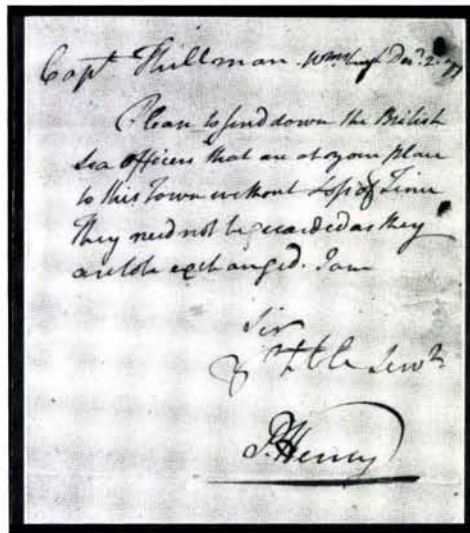 Capt Thillman. Wmsburgh Decr. 2. 77
Please to send down the British
Sea Officers that are at your place
to this Town without Loss of Time
They need not be guarded as they
are to be exchanged. I am
Sir
Servt
P. Henry